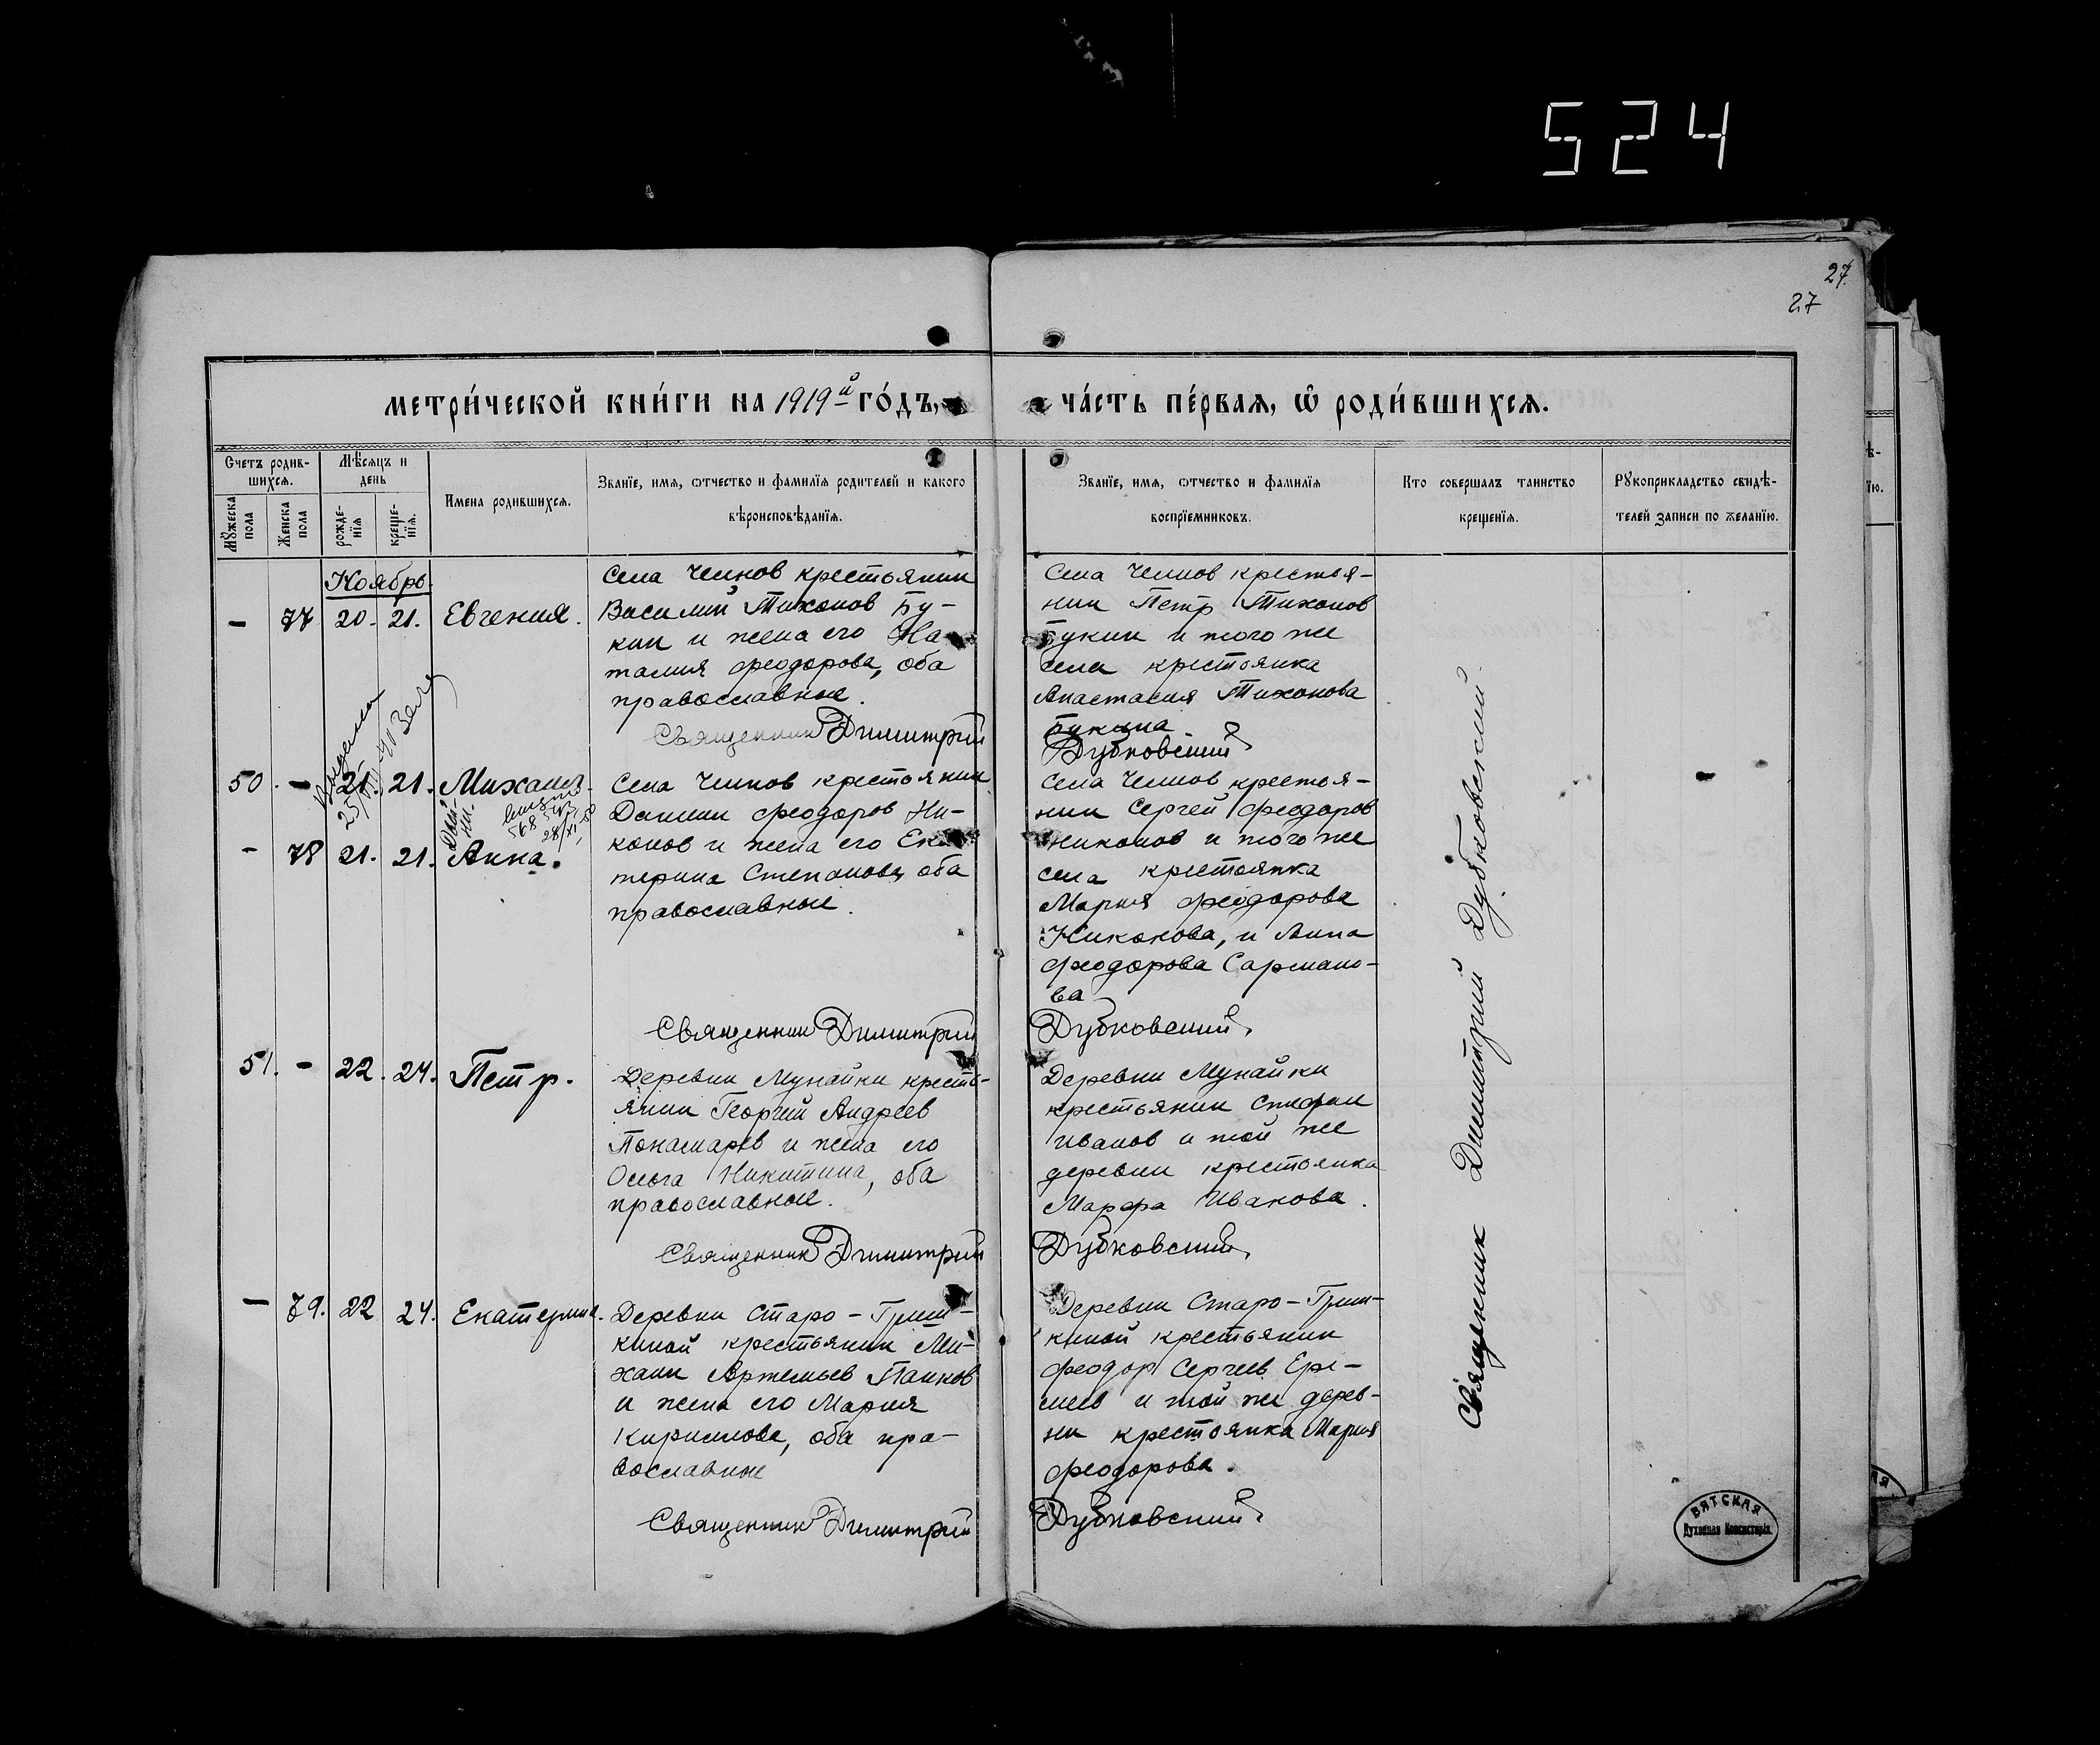 524
27.
27
Метри́ческой кни́ги на 1919й го́дъ,
ча́сть пе́рвая, ѡ роди́вшихся.
Счетъ родив-
шихся.
Мѣсяцъ и
день
Имена родившихся.
Званїе, имя, ѿчество и фамилїя родителей и какого
вѣроисповѣданїя.
Званїе, имя, ѿчество и фамилїя
воспрїемниковъ.
Кто совершалъ таинство
крещенїя.
Рꙋкоприкладство свидѣ-
телей записи по желанїю.
Мꙋжеска
пола
Женска
пола
рожде-
нїя
креще-
нїя.
Ноябрь.
— 77 20. 21. Евгения.
Села Челнов крестьянин
Василий Тихонов Бу-
кин и жена его На-
талия Феодорова, оба
православные.
Священник Димитрий
Села Челнов крестья-
нин Петр Тихонов
Букин и того же
села крестьянка
Анастасия Тихонова
Букина
Дубковский
50. — 21. 21. Михаил.
Двой-
ни.
568
28/XI
— 78 21. 21. Анна.
Села Челнов крестьянин
Даниил Феодоров Ни-
конов и жена его Ека-
терина Степанова, оба
православные.
Священник Димитрий
Села Челнов крестья-
нин Сергей Феодоров
Никонов и того же
села крестьянка
Мария Феодорова
Никонова, и Анна
Феодорова Сармано-
ва
Дубковский
51. — 22. 24. Петр.
Деревни Мунайки кресть-
янин Георгий Андреев
Понамарев и жена его
Ольга Никитина, оба
православные.
Священник Димитрий
Деревни Мунайки
крестьянин Стефан
Иванов и той же
деревни крестьянка
Марфа Иванова.
Дубковский
— 79. 22 24. Екатерина.
Деревни Старо-Гриш-
киной крестьянин Ми-
хаил Артемьев Панков
и жена его Мария
Кириллова, оба пра-
вославные
Священник Димитрий
Деревни Старо-Гриш-
киной крестьянин
Феодор Сергеев Ере-
меев и той же дерев-
ни крестьянка Мария
Феодорова.
Дубковский
Священник Димитрий Дубковский
ВЯТСКАЯ
Духовная Консисторія.